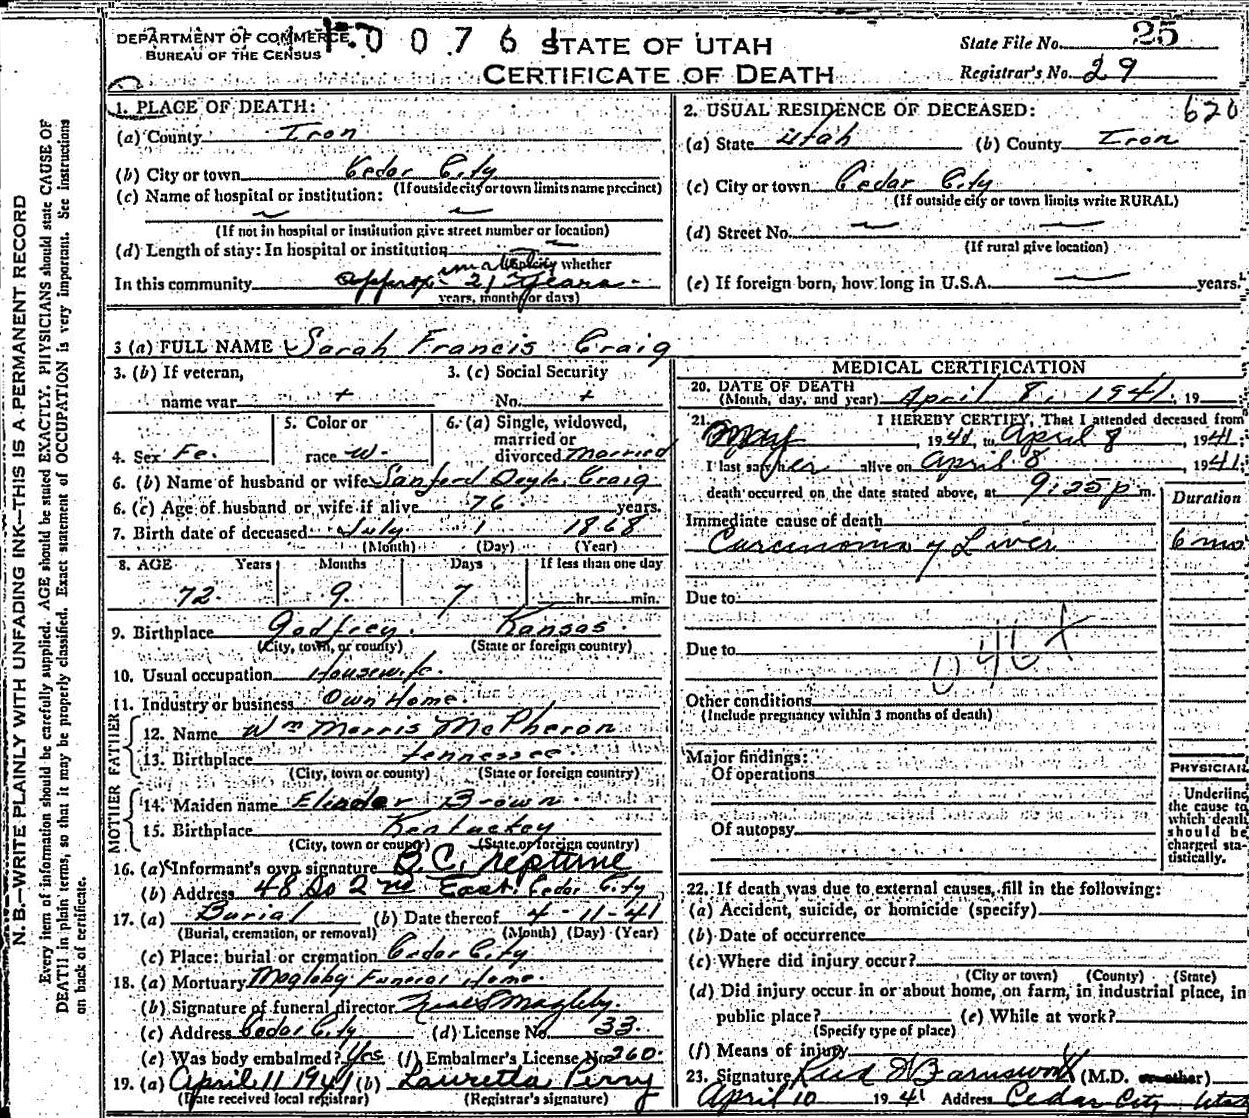 DEPARTMENT OF COMMERCE
BUREAU OF THE CENSUS
0 0 7 6 1
STATE OF UTAH
CERTIFICATE OF DEATH
State File No. 25
Registrar's No. 29
1. PLACE OF DEATH:
(a) County Iron
(b) City or town Cedar City
(If outside city or town limits name precinct)
(c) Name of hospital or institution:
(If not in hospital or institution give street number or location)
(d) Length of stay: In hospital or institution
Specify whether
In this community approx. 21 years
years, months or days)
2. USUAL RESIDENCE OF DECEASED: 620
(a) State Utah (b) County Iron
(c) City or town Cedar City
(If outside city or town limits write RURAL)
(d) Street No.
(If rural give location)
(e) If foreign born, how long in U.S.A. years.
3 (a) FULL NAME Sarah Francis Craig
3. (b) If veteran, 3. (c) Social Security
name war + No. +
4. Sex Fe. 5. Color or race W. 6. (a) Single, widowed, married or divorced Married
6. (b) Name of husband or wife Sanford Craig
6. (c) Age of husband or wife if alive 76 years.
7. Birth date of deceased July 1 1868
(Month) (Day) (Year)
8. AGE Years Months Days If less than one day
72 9 7 hr. min.
9. Birthplace Godfrey. Kansas.
(City, town, or county) (State or foreign country)
10. Usual occupation Housewife.
11. Industry or business Own Home.
FATHER
12. Name Wm Morris McPheron
13. Birthplace Tennessee.
(City, town or county) (State or foreign country)
MOTHER
14. Maiden name Elinder Brown
15. Birthplace Kentuckey
(City, town or county) (State or foreign country)
16. (a) Informant's own signature B.C. Neptune
(b) Address 48 So 2nd East. Cedar City
17. (a) Burial (b) Date thereof 4-11-41
(Burial, cremation, or removal) (Month) (Day) (Year)
(c) Place: burial or cremation Cedar City
18. (a) Mortuary Magleby Funeral Home.
(b) Signature of funeral director Magleby.
(c) Address Cedar City (d) License No. 33.
(e) Was body embalmed? Yes (f) Embalmer's License No. 260.
19. (a) April 11 1941 (b) Lauretta Perry
(Date received local registrar) (Registrar's signature)
MEDICAL CERTIFICATION
20. DATE OF DEATH
(Month, day, and year) April 8, 1941, 19
21. I HEREBY CERTIFY, That I attended deceased from
May 1940, to April 8, 1941;
I last saw her alive on April 8, 1941;
death occurred on the date stated above, at 9:25 p m.
Duration
Immediate cause of death
Carcinoma of Liver 6 mo
Due to
Due to 046 X
Other conditions
(Include pregnancy within 3 months of death)
Major findings:
Of operations
Of autopsy
PHYSICIAN
Underline
the cause to
which death
should be
charged sta-
tistically.
22. If death was due to external causes, fill in the following:
(a) Accident, suicide, or homicide (specify)
(b) Date of occurrence
(c) Where did injury occur?
(City or town) (County) (State)
(d) Did injury occur in or about home, on farm, in industrial place, in
public place? (e) While at work?
(Specify type of place)
(f) Means of injury
23. Signature Farnsworth (M.D. or other)
April 10 1941 Address Cedar City Utah
N. B.—WRITE PLAINLY WITH UNFADING INK—THIS IS A PERMANENT RECORD
Every item of information should be carefully supplied. AGE should be stated EXACTLY. PHYSICIANS should state CAUSE OF
DEATH in plain terms, so that it may be properly classified. Exact statement of OCCUPATION is very important. See instructions
on back of certificate.